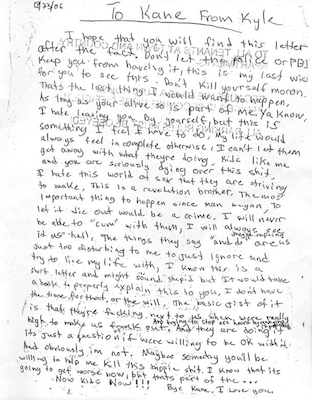 03/23/06
To Kane From Kyle
I hope that you will find this letter
after the fact. Don't let the police or PBJ
Keep you from haveing it, this is my last wish
for you to see this. Don't Kill yourself moron.
Thats the last thing I would want to happen,
As long as your alive so is part of me. Ya Know,
I hate leaving you by yourself, but this is
something I feel I have to do, My life would
always feel in complete otherwise. I can't let them
get away with what they're doing. Kids like me
and you are seriously dying over this shit.
I hate this world of sex that they are striving
to make. This is a revolution brother. The most
important thing to happen since man began. To
let it die out would be a crime. I will never
be able to "cum" with them, I will always see
it as hell. The things they say "and do" are
just too disturbing to me to just ignore and
try to live my life with, I know this is a
short letter and might sound stupid but It would take
a book to properly explain this to you. I dont have
the time for that, or the will. The basic gist of it
is that they're fucking next to us when were really
high, to make us freak out, And they are doing it
its just a question if were willing to be OK with it.
And obviously im not. Maybee someday you'll be
willing to help me Kill this hippie shit. I know that its
going to get worse now, but thats part of the...
Now Kids Now!!!
Bye Kane. I Love you